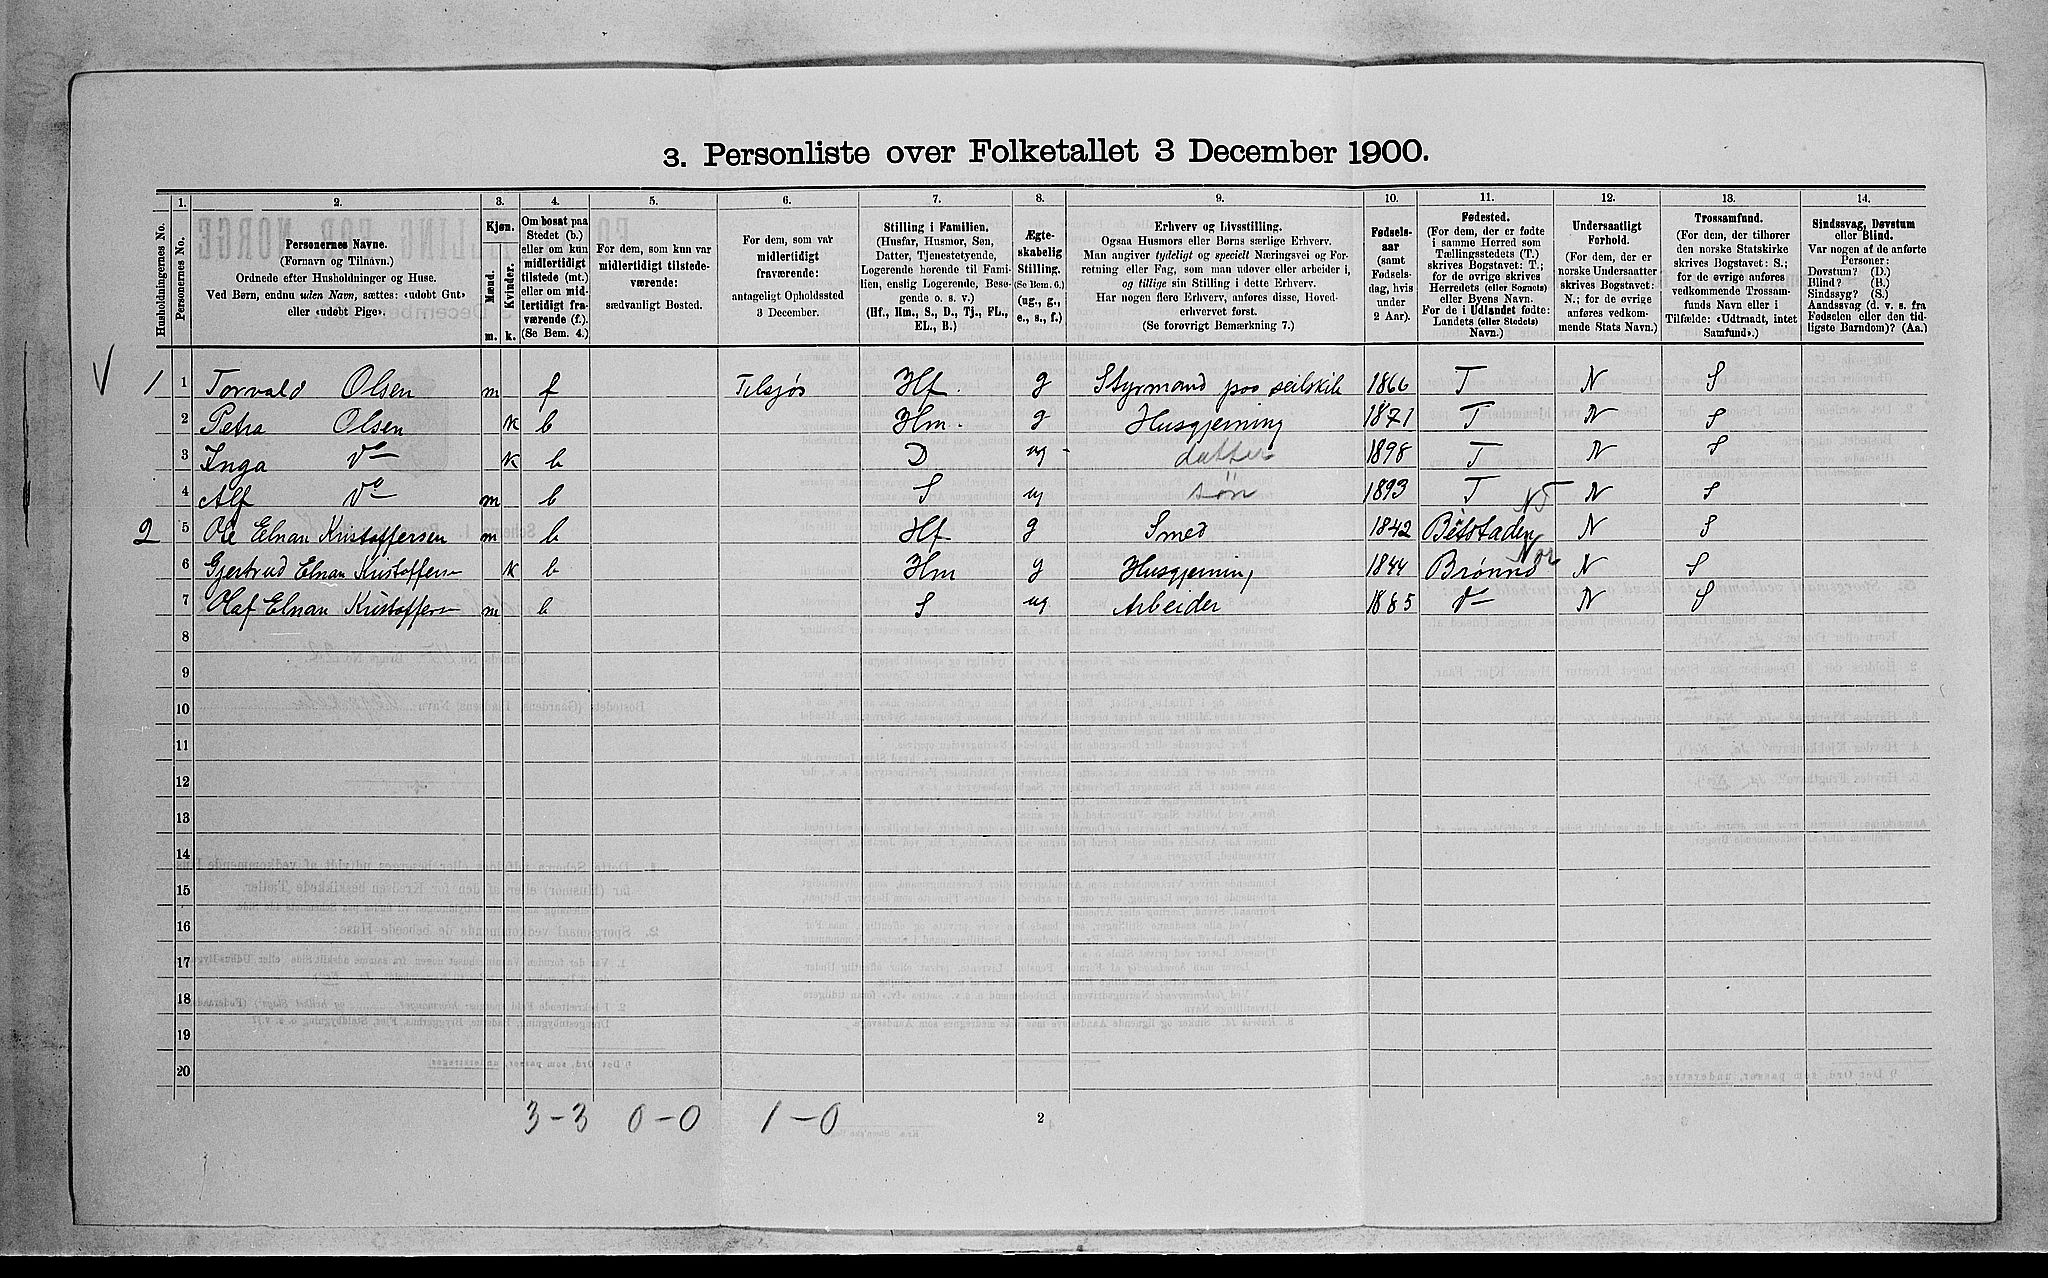 3. Personliste over Folketallet 3 December 1900.
Husholdningernes No.
1. Personernes No.
2. Personernes Navne. (Fornavn og Tilnavn.) Ordnede efter Husholdninger og Huse. Ved Børn, endnu uden Navn, sættes: «udøbt Gut» eller «udøbt Pige».
3. Kjøn. Mænd. m. Kvinder. k.
4. Om bosat paa Stedet (b.) eller om kun midlertidigt tilstede (mt.) eller om midlertidigt fraværende (f.) (Se Bem. 4.)
5. For dem, som kun var midlertidigt tilstedeværende: sædvanligt Bosted.
6. For dem, som var midlertidigt fraværende: antageligt Opholdssted 3 December.
7. Stilling i Familien. (Husfar, Husmor, Søn, Datter, Tjenestetyende, Logerende hørende til Familien, enslig Logerende, Besøgende o. s. v.) (Hf., Hm., S., D., Tj., FL., EL., B.)
8. Ægteskabelig Stilling. (Se Bem. 6.) (ug., g., e., s., f.)
9. Erhverv og Livsstilling. Ogsaa Husmors eller Børns særlige Erhverv. Man angiver tydeligt og specielt Næringsvei og Forretning eller Fag, som man udøver eller arbeider i, og tillige sin Stilling i dette Erhverv. Har nogen flere Erhverv, anføres disse, Hovederhvervet først. (Se forøvrigt Bemærkning 7.)
10. Fødselsaar (samt Fødselsdag, hvis under 2 Aar).
11. Fødested. (For dem, der er fødte i samme Herred som Tællingsstedets (T.) skrives Bogstavet: T.; for de øvrige skrives Herredets (eller Sognets) eller Byens Navn. For de i Udlandet fødte: Landets (eller Stedets) Navn.)
12. Undersaatligt Forhold. (For dem, der er norske Undersaatter skrives Bogstavet: N.; for de øvrige anføres vedkommende Stats Navn.)
13. Trossamfund. (For dem, der tilhører den norske Statskirke skrives Bogstavet: S.; for de øvrige anføres vedkommende Trossamfunds Navn eller i Tilfælde: «Udtraadt, intet Samfund».)
14. Sindssvag, Døvstum eller Blind. Var nogen af de anførte Personer: Døvstum? (D.) Blind? (B.) Sindssyg? (S.) Aandssvag (d. v. s. fra Fødselen eller den tidligste Barndom)? (Aa.)
V 1 1 Torvald Olsen m f Tilsjøs Hf. g Styrmand paa seilskib 1866 T N S
2 Petra Olsen k b Hm. g Husgjerning 1871 T N S
3 Inga do k b D ug datter 1898 T N S
4 Alf do m b S ug søn 1893 T N S
NT
2 5 Ole Elnan Kristoffersen m b Hf g Smed 1842 Betstaden N S
No
6 Gjertrud Elnan Kristoffersen k b Hm g Husgjerning 1844 Brønnø N S
7 Olaf Elnan Kristoffersen m b S ug Arbeider 1885 do N S
8
9
10
11
12
13
14
15
16
17
18
19
20
3-3 0-0 1-0
2